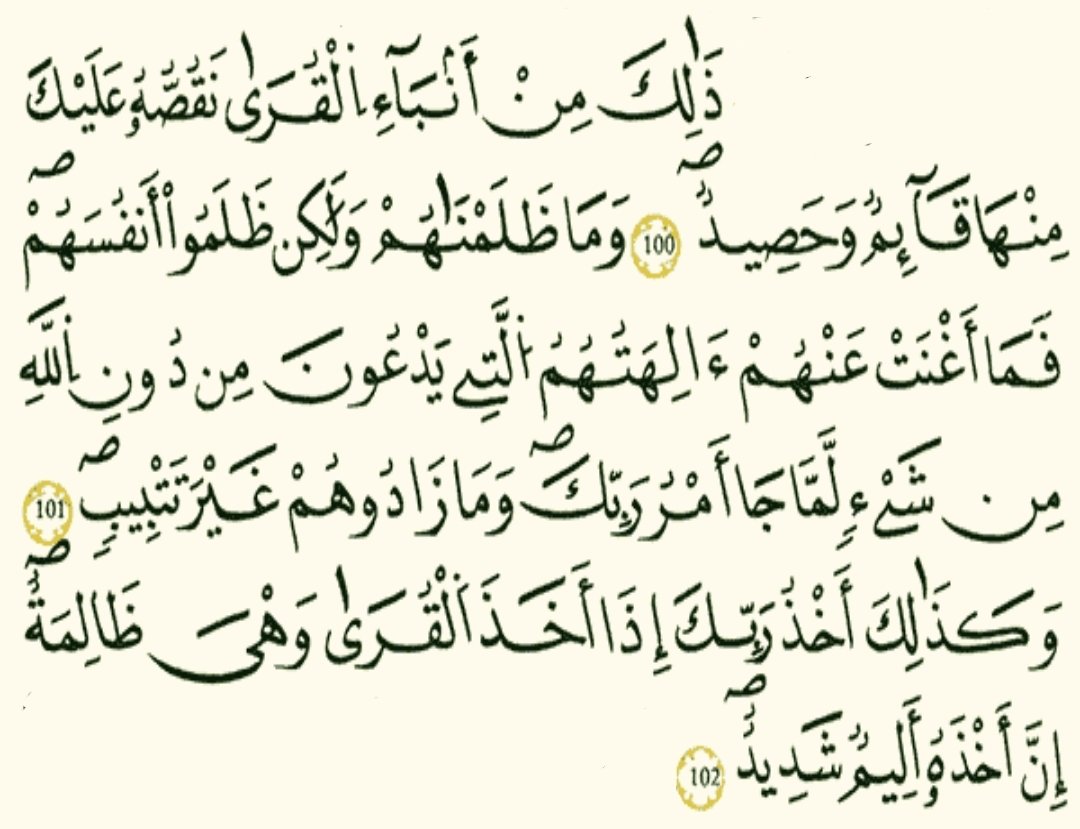 ذَٰلِكَ مِنْ أَنۢبَآءِ اِ۬لْقُرَىٰ نَقُصُّهُۥ عَلَيْكَۖ
مِنْهَا قَآئِمٞ وَحَصِيدٞۖ 100 وَمَا ظَلَمْنَٰهُمْ وَلَٰكِن ظَلَمُوٓاْ أَنفُسَهُمْ
فَمَا أَغْنَتْ عَنْهُمْ ءَالِهَتُهُمُ اُ۬لَّتِے يَدْعُونَ مِن دُونِ اِ۬للَّهِ
مِن شَےْءٖ لَّمَّا جَا أَمْرُ رَبِّكَۖ وَمَا زَادُوهُمْ غَيْرَ تَتْبِيبٖۖ 101
وَكَذَٰلِكَ أَخْذُ رَبِّكَ إِذَا أَخَذَ اَ۬لْقُرَىٰ وَهْىَ ظَالِمَةٌۖ
إِنَّ أَخْذَهُۥ أَلِيمٞ شَدِيدٌۖ 102